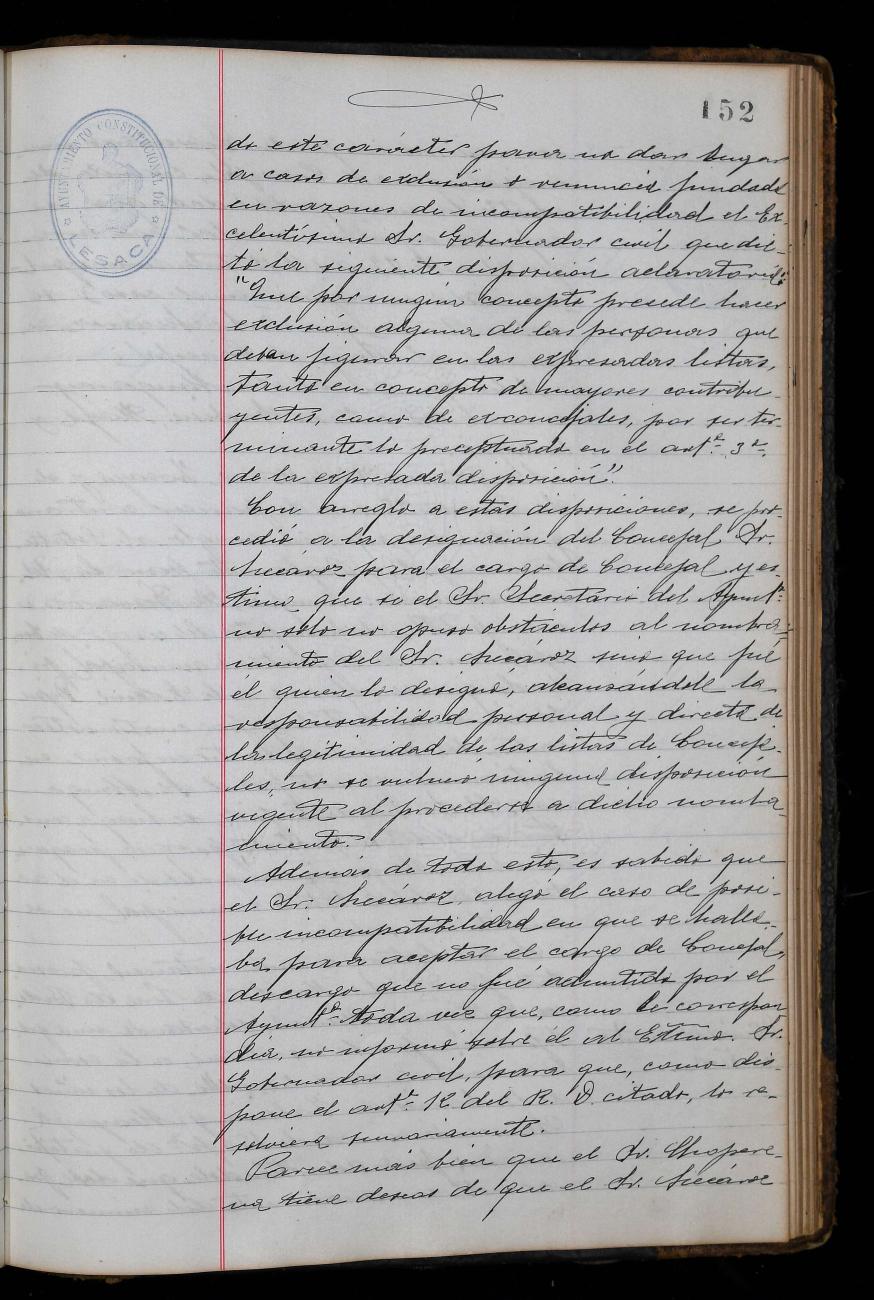 152
AYUNTAMIENTO CONSTITUCIONAL DE
LESACA
do este carácter para no dar lugar
a casos de exclusión o renuncia fundada
en razones de incompatibilidad el Ex-
celentísimo Sr. Gobernador civil que dic-
tó la siguiente disposición aclaratoria:
"Que por ningún concepto procede hacer
exclusión alguna de las personas que
deban figurar en las expresadas listas,
tanto en concepto de mayores contribu-
yentes, como de exconcejales, por ser ter-
minante lo preceptuado en el artº. 3º.
de la expresada disposición".
Con arreglo a estas disposiciones, se pro-
cedió a la designación del Concejal Sr.
para el cargo de Concejal y es-
timo que si el Sr. Secretario del Ayuntº.
no sólo no opuso obstáculos al nombra-
miento del Sr. sino que fué
él quien lo designó, alcanzándole la
responsabilidad personal y directa de
la legitimidad de las listas de Conceja-
les, no se vulneró ninguna disposición
vigente al procederse a dicho nombra-
miento.
Además de todo esto, es sabido que
el Sr. alegó el caso de posi-
ble incompatibilidad en que se halla-
ba para aceptar el cargo de Concejal,
descargo que no fué admitido por el
Ayuntº. toda vez que, como le correspon-
día, no informó sobre él al Extmo. Sr.
Gobernador civil, para que, como dis-
pone el artº. del R. D. citado, lo re-
solviera sumariamente.
Parece más bien que el Sr. Chopere-
na tiene deseos de que el Sr.